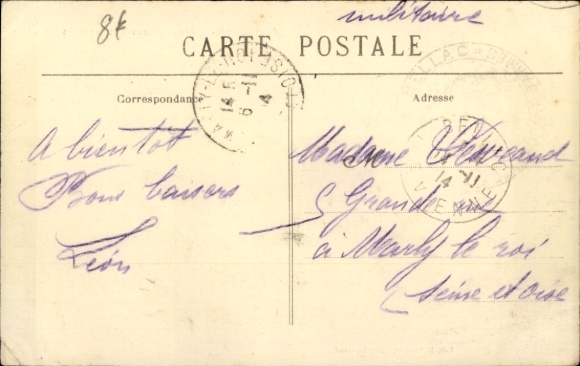 8€
militaire
CARTE POSTALE
Correspondance
Adresse
A bientôt
Bons baisers
Léon
Madame
5 Grande rue
à Marly le roi
Seine et oise